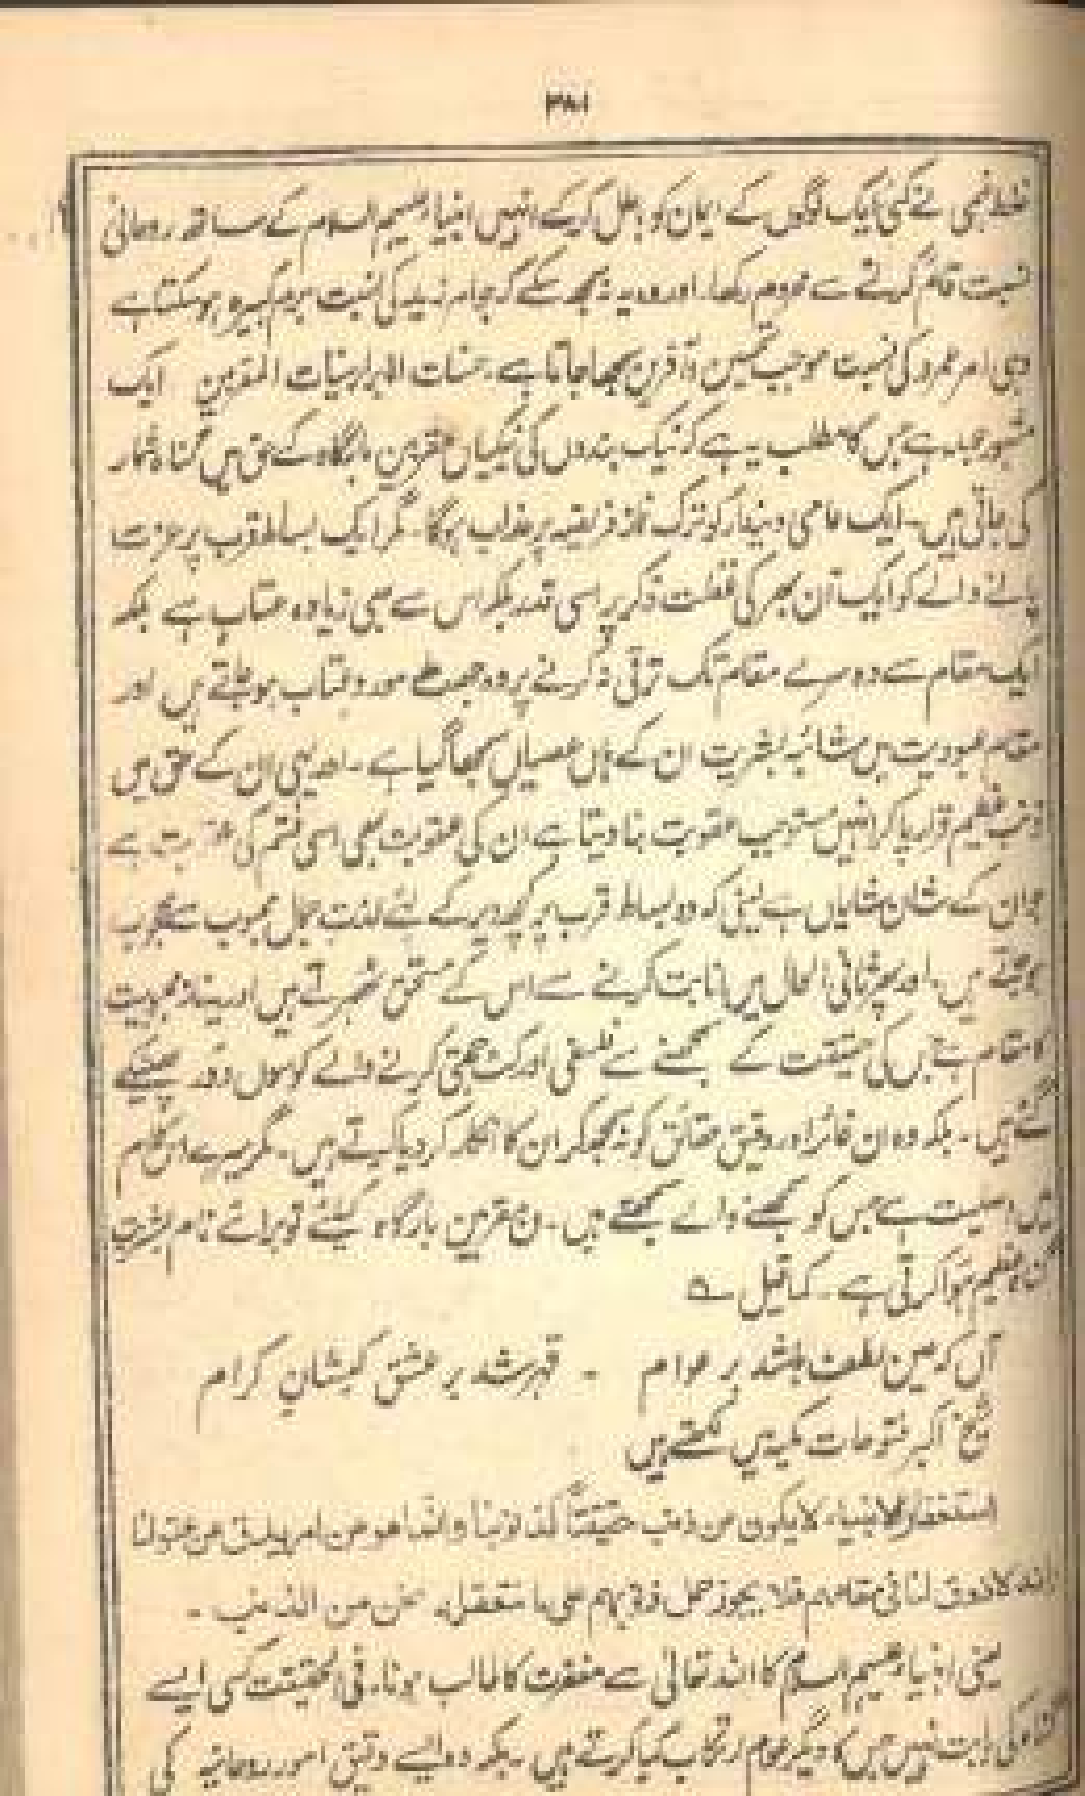 ۳۸۱
غلط فہمی نے کئی ایک لوگوں کے ایمان کو باطل کرکے انہیں انبیاء علیہم السلام کے ساتھ روحانی
نسبت قائم کرنے سے محروم رکھا۔ اور وہ یہ نہ سمجھ سکے کہ جو امر زید کی نسبت جرم کبیرہ ہوسکتا ہے
وہی امر عمرو کی نسبت موجب تحسین و آفرین سمجھا جاتا ہے۔ حسنات الابرار سیئات المقربین ایک
مشہور جملہ ہے جس کا مطلب یہ ہے کہ نیک بندوں کی نیکیاں مقربین بارگاہ کے حق میں گناہ شمار
کی جاتی ہیں۔ ایک عامی دیندار کو ترک نماز فریضہ پر عذاب ہوگا۔ مگر ایک بساط قرب پر عزت
پانے والے کو ایک آن بھر کی غفلت ذکر پر اسی قدر بلکہ اس سے بھی زیادہ عتاب ہے بلکہ
ایک مقام سے دوسرے مقام تک ترقی نہ کرنے پر وہ مورد عتاب ہو جاتے ہیں اور
مقام عبودیت میں شائبہ بشریت ان کے ہاں عصیاں سمجھا گیا ہے۔ اور یہی ان کے حق میں
ذنب عظیم قرار پا کر انہیں مستوجب عقوبت بنا دیتا ہے ان کی عقوبت بھی اسی قسم کی ہے
جو ان کے شان شایاں ہے یعنی کہ وہ بساط قرب پر کچھ دیر کے لئے لذت جمال محبوب سے محجوب
ہو جاتے ہیں۔ اور پھر ثانی الحال میں انابت کرنے سے اس کے مستحق ٹھہرتے ہیں اور یہ
کا مقام ہے جس کی حقیقت کے سمجھنے سے فلسفی اور کٹ حجتی کرنے والے کوسوں دور پھینکے
گئے ہیں۔ بلکہ وہ ان غائر اور دقیق حقائق کو نہ سمجھکر ان کا انکار کر دیا کرتے ہیں۔ مگر میرے اس کلام
میں اصلیت ہے جس کو سمجھنے والے سمجھتے ہیں۔ ان مقربین بارگاہ کیلئے تو برائے نام بشریت
گناہ عظیم ہوا کرتی ہے۔ کما قیل ؎
آں کہ عین لطف باشد بر عوام ۔ قہر شد بر عشق کیشان کرام
شیخ اکبر فتوحات مکیہ میں لکھتے ہیں
استغفار الانبیاء لا یکون من ذنب حقیقتاً کذنوبنا وانما هو من امر یدق عن عقولنا
لانه لا ذوق لنا فی مقامهم فلا یجوز حمل ذنوبهم علی ما نتعقله نحن من الذنب ۔
یعنی انبیاء علیہم السلام کا اللہ تعالیٰ سے مغفرت کا طالب ہونا۔ فی الحقیقت کسی ایسے
گناہ کی بابت نہیں جس کا دیگر عوام ارتکاب کیا کرتے ہیں ۔ بلکہ وہ ایسے دقیق امور روحانیہ کی